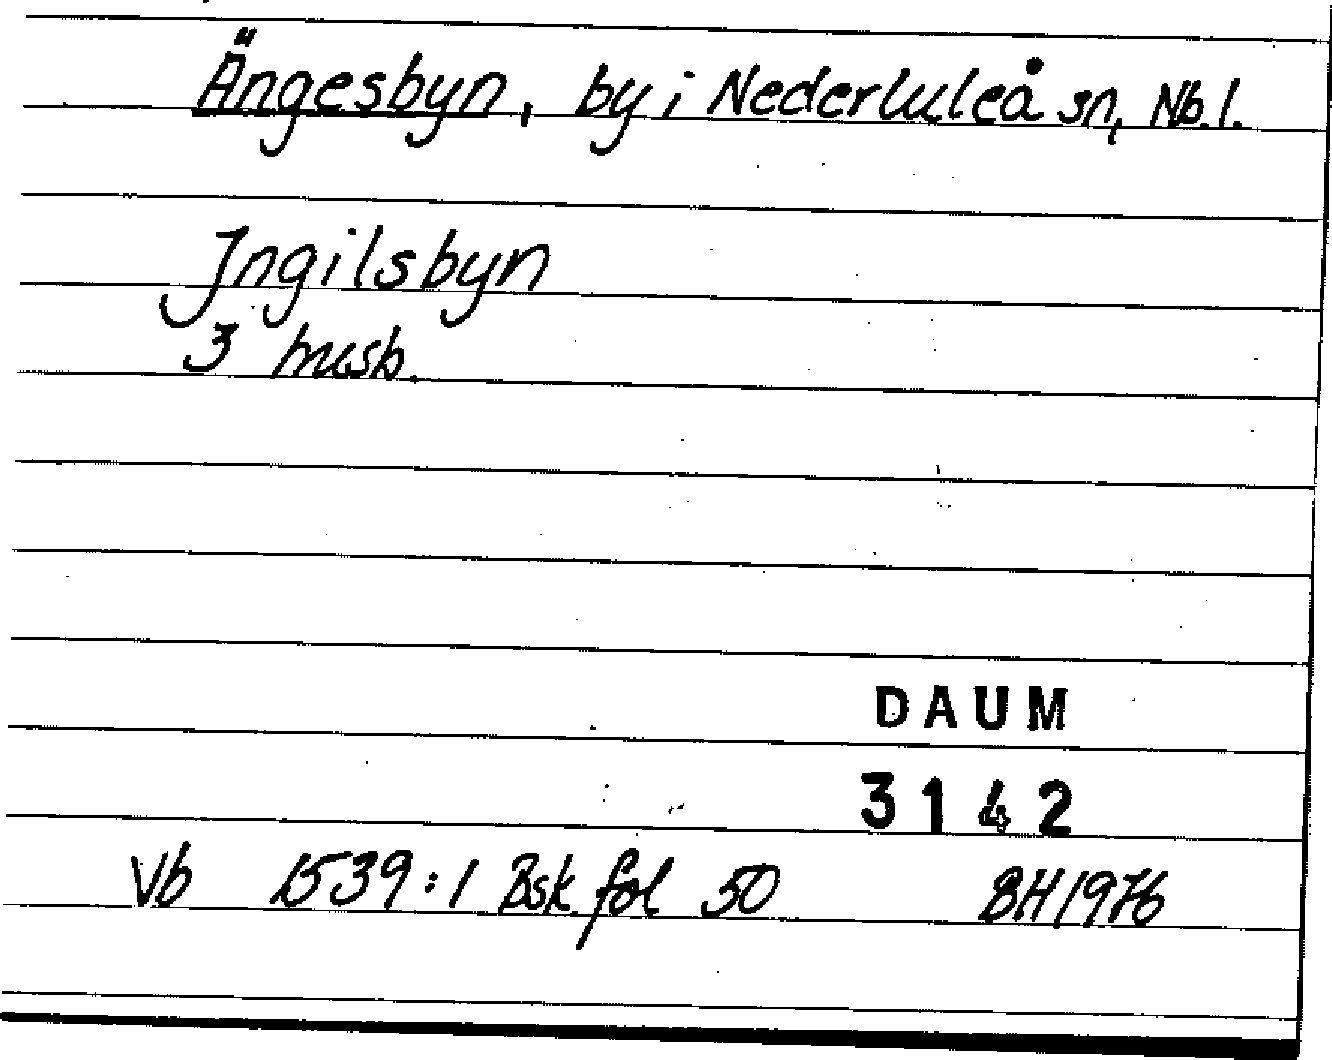 Ängesbyn, by i Nederluleå sn, Nb.l.
Jngilsbyn
3 husb.
DAUM
3142
Vb 1539:1 Bsk fol 50 BH1976